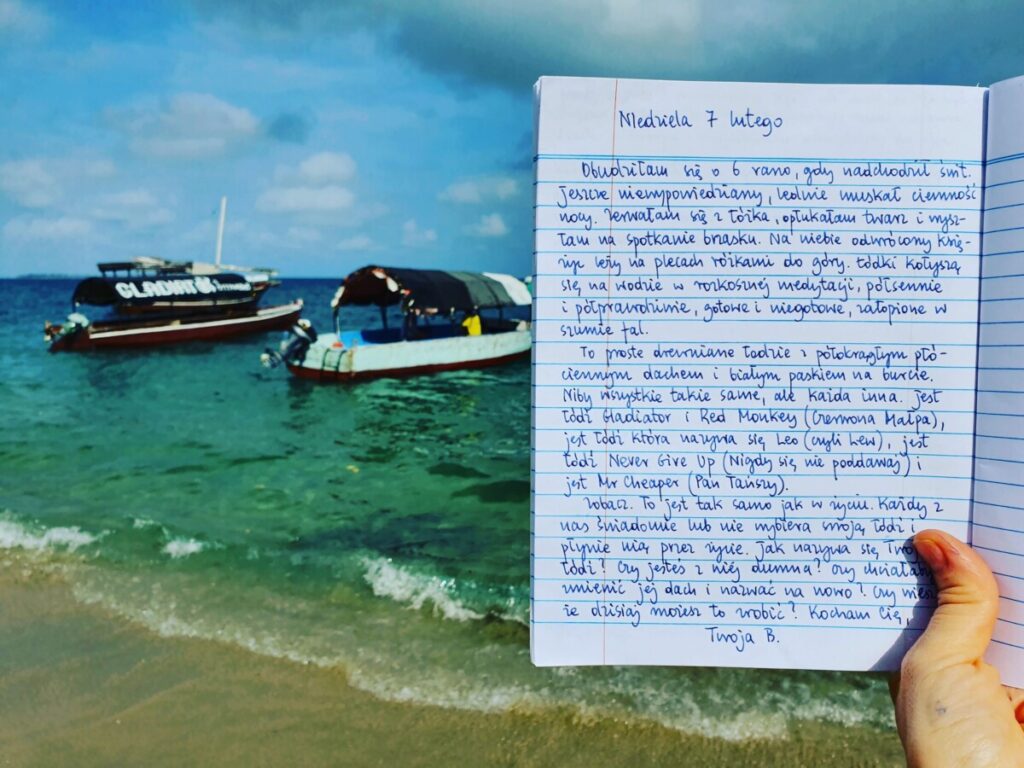 GLADIATOR
Niedziela 7 lutego
Obudziłam się o 6 rano, gdy nadchodził świt.
Jeszcze niewypowiedziany, ledwie muskał ciemność
nocy. Zerwałam się z łóżka, opłukałam twarz i wysz-
łam na spotkanie brzasku. Na niebie odwrócony księ-
życ leży na plecach różkami do góry. Łódki kołyszą
się na wodzie w rozkosznej medytacji, półsennie
i półprawdziwie, gotowe i niegotowe, zatopione w
szumie fal.
To proste drewniane łodzie z półokrągłym płó-
ciennym dachem i białym paskiem na burcie.
Niby wszystkie takie same, ale każda inna. Jest
łódź Gladiator i Red Monkey (Czerwona Małpa),
jest łódź która nazywa się Leo (czyli Lew), jest
łódź Never Give Up (Nigdy się nie poddawaj) i
jest Mr Cheaper (Pan Tańszy).
Zobacz. To jest tak samo jak w życiu. Każdy z
nas świadomie lub nie wybiera swoją łódź i
płynie nią przez życie. Jak nazywa się
łódź? Czy jesteś z niej dumna? Czy
zmienić jej dach i nazwać na nowo? Czy
że dzisiaj możesz to zrobić? Kocham Cię,
Twoja B.